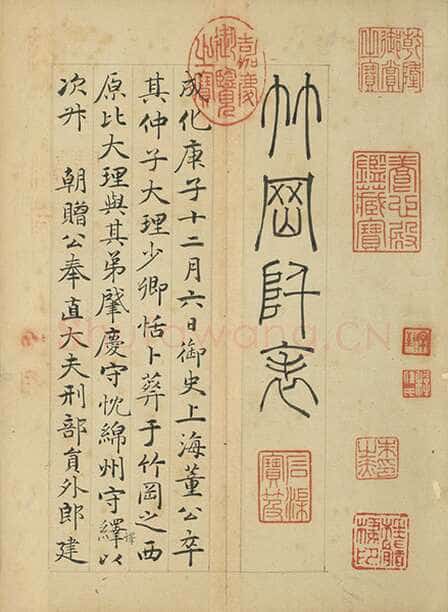 乾隆御賞之寶
養心殿鑑藏寶
竹岡阡表
石渠寶笈
嘉慶御覽之寶
成化庚子十二月六日御史上海董公卒
其仲子大理少卿恬卜葬于竹岡之西
原比大理與其弟肇慶守忱綿州守繹以
次升 朝贈公奉直大夫刑部員外郎建